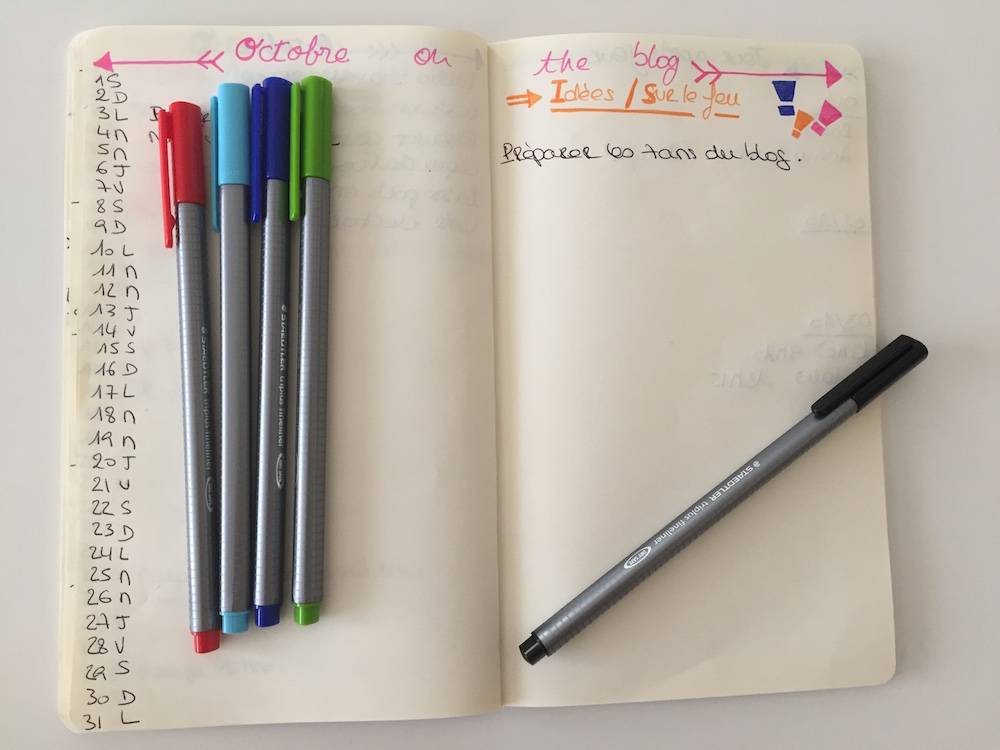 Octobre on the blog
1 S
2 D
3 L
4 M
5 M
6 J
7 V
8 S
9 D
10 L
11 M
12 M
13 J
14 V
15 S
16 D
17 L
18 M
19 M
20 J
21 V
22 S
23 D
24 L
25 M
26 M
27 J
28 V
29 S
30 D
31 L
STAEDTLER triplus fineliner DRY SAFE
STAEDTLER triplus fineliner DRY SAFE
⇒ Idées / Sur le feu
Préparer les 7 ans du blog.
STAEDTLER triplus fineliner DRY SAFE